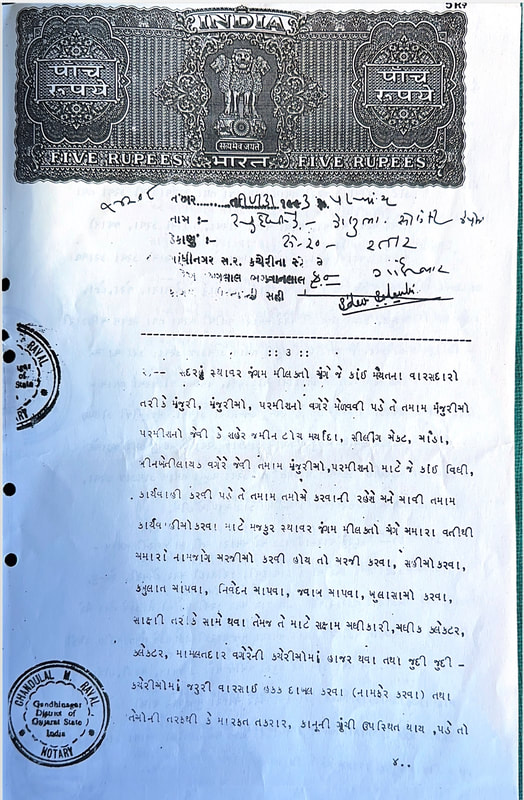 INDIA
પાંચ રૂપયે
પાંચ રૂપયે
सत्यमेव जयते
FIVE RUPEES
भारत
FIVE RUPEES
નંબર
નામ :-
ઠેકાણું :-
ગાંધીનગર સ.ર. કચેરીના
ભગવાનલાલ
સહી
:: ૩ ::
૨,-- સદરહું સ્થાવર જંગમ મીલકતો અંગે જે કાંઈ મૈયતના વારસદારો
તરીકે મંજુરી, મંજુરીઓ, પરમીશનો વગેરે મેળવવી પડે તે તમામ મંજુરીઓ
પરમીશનો જેવી કે શહેર જમીન ટોચ મર્યાદા, સીલીંગ એક્ટ, ચાંડા,
બીનખેતીલાયક વગેરે જેવી તમામ મંજુરીઓ,પરમીશનો માટે જે કાંઈ વિધી,
કાર્યવાહી કરવી પડે તે તમામ તમોએ કરવાની રહેશે અને આવી તમામ
કાર્યવાહીઓકરવા માટે મજકુર સ્થાવર જંગમ મીલકતો અંગે અમારા વતીથી
અમારાં નામજોગ અરજીઓ કરવી હોય તો અરજી કરવા, સહીઓકરવા,
કબુલાત આપવા, નિવેદન આપવા, જવાબ આપવા, ખુલાસાઓ કરવા,
સાક્ષી તરીકે સામે થવા તેમજ તે માટે સક્ષમ અધીકારી,અધીક કલેકટર,
કલેકટર, મામલતદાર વગેરેની કચેરીઓમાં હાજર થવા તથા જુદી જુદી -
કચેરીઓમાં જરૂરી વારસાઈ હકક દાખલ કરવા (નામફેર કરવા) તથા
તેઓની તરફથી કે મારફત તકરાર, કાનૂની ગૂંચી ઉપસ્થિત થાય ,પડે તો
૪..
RAVAL
State
NOTARY
CHANDULAL M. RAVAL
Gandhinagar
District of
Gujarat State
India
NOTARY